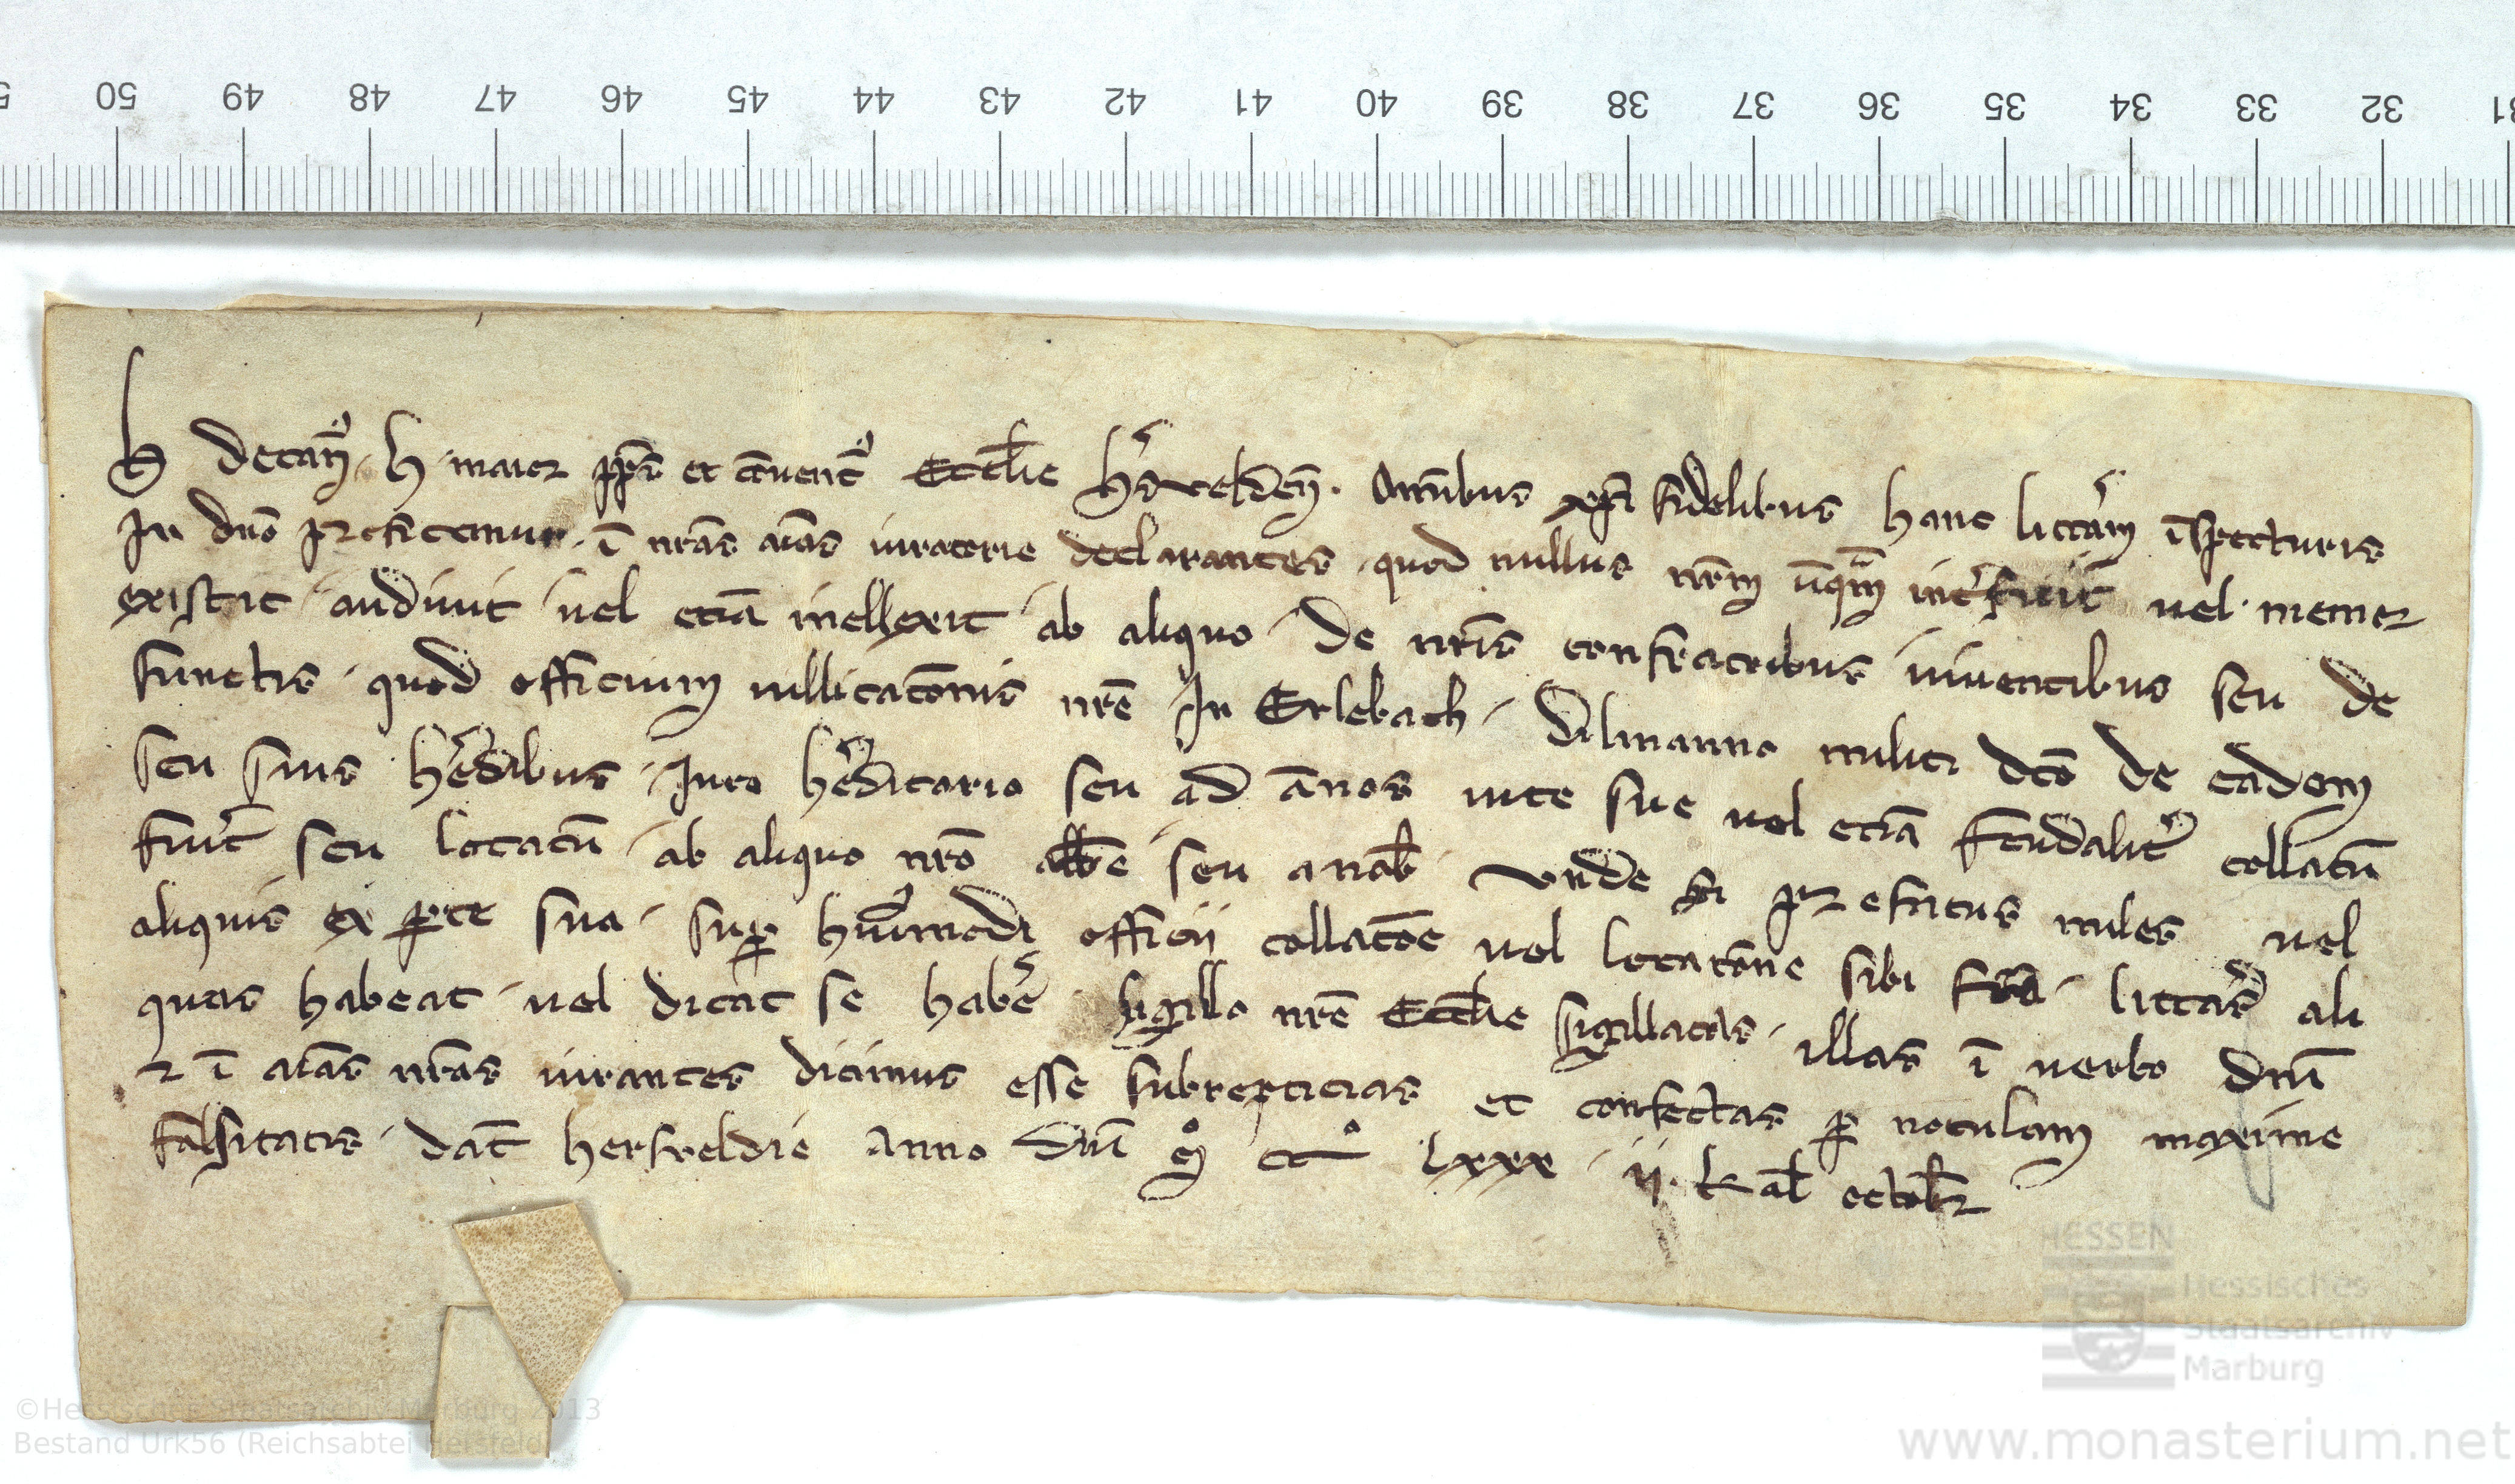 50 49 48 47 46 45 44 43 42 41 40 39 38 37 36 35 34 33 32 31
H decan9 . H . maior ppt et ꝯuent9 Eccl̄ie h'sveldeñ . Om̄ibus xp̄i fidelibus hanc litt'am īspecturis
In dn̄o profitemur . ī nr̄as aīas iuratorie declarantes . quod nullus nr̄m ūq̄m int'fuit vel memor
existit / audiuit / uel etiā intellexit / ab aliquo / de nr̄is confratribus / uiuentibus seu de
functis . quod officium uillicatōnis nr̄e / In Erlebach / Dilmanno militi dc̄o de eadem
seu suis h'edibus . Iure h'editario seu ad ānos uite sue uel etiā feudalit' collatū
fuit seu locatū / ab aliquo nr̄o abb̄e / seu a nob̄ . Unde si prefatus miles uel
aliquis ex ꝑte sua / suꝑ hui9modi officii collatōe uel locatōne sibi fc̄a / litt'as ali
quas habeat / uel dicat se hab'e sigillo nr̄e Eccl̄ie sigillatas . illas ī uerbo dn̄i
⁊ ī aīas nr̄as iurantes dicimus esse subrepticias et confectas ꝑ notulam maxime
falsitatis . dat̄ hersveldie Anno Dn̄i m̊ cc̊ lxxx . ii . kal̄ octobr̄
©Hessisches Staatsarchiv Marburg 2013
Bestand Urk56 (Reichsabtei Hersfeld)
HESSEN
Hessisches
Staatsarchiv
Marburg
www.monasterium.net